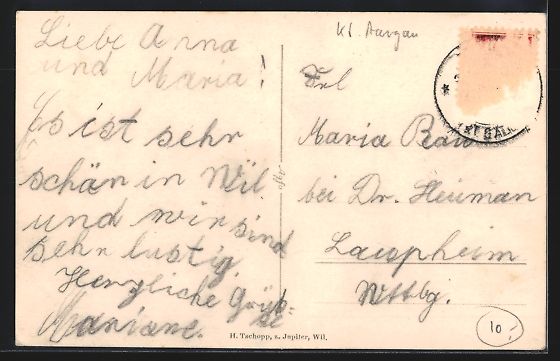 Kt. Aargau
Liebe Anna
und Maria!
Es ist sehr
schön in Wil
und wir sind
sehr lustig.
Herzliche Grüß=
Mariane.
Frl
Maria
bei Dr. Heuman
Laupheim
Wttbg.
10,-
H. Tschopp, z. Jupiter, Wil.